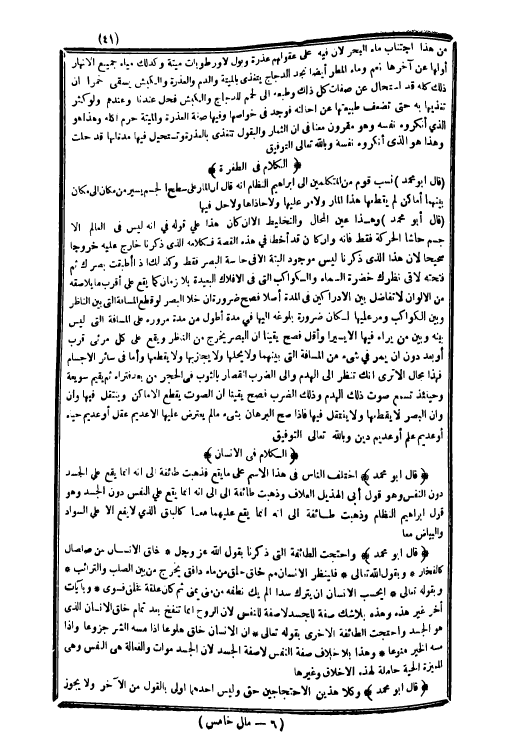 (٤١)
من هذا اجتناب ماء البحر لان فيه على عقولهم عذرة وبول ورطوبات ميتة وكذلك مياه جميع الانهار
أولها عن آخرها نعم وماء المطر أيضا نجد الدجاج يتغذى بالميتة والدم والعذرة والكبش يسقى خمرا ان
ذلك كله قد استحال عن صفات كل ذلك وطبعه الى لحم الدجاج والكبش فحل عندنا وعندهم ولو كثر
تغذيها به حتى تضعف طبيعتها عن احالته فوجد في خواصها وفيها صفة العذرة والميتة حرم اكله وهذا هو
الذي أنكروه نفسه وهو مقرون معنا في ان الثمار والبقول تتغذى بالعذرة وتستحيل فيها مدة انها قد حلت
وهذا هو الذى أنكروه نفسه وبالله تعالى التوفيق
﴿ الكلام فى الطفرة ﴾
(قال ابو محمد) نسب قوم من المتكلمين الى ابراهيم النظام انه قال ان المار على سطح الجسم يسير من مكان الى مكان
بينهما أماكن لم يقطعها هذا المار ولا مر عليها ولا حاذاها ولا حل فيها
(قال أبو محمد) وهذا عين المحال والتخليط الا ان كان هذا على قوله في انه ليس فى العالم الا
جسم حاشا الحركة فقط فانه وان كان قد اخطأ في هذه القصة فكلامه الذى ذكرنا خارج عليه خروجا
صحيحا لان هذا الذى ذكرنا ليس موجودا البتة الا فى حاسة البصر فقط وكذلك اذا اطبقت بصرك ثم
فتحته لاقى نظرك خضرة السماء والكواكب التى فى الافلاك البعيدة بلا زمان كما يقع على أقرب ما يلاصقه
من الالوان لا تفاضل بين الادراكين فى المدة أصلا فصح ضرورة ان خط البصر لو قطع المسافة التى بين الناظر
وبين الكواكب ومر عليها لكان ضرورة بلوغه اليها فى مدة أطول من مدة مروره على المسافة التى ليس
بينه وبين من يراه فيها الا يسيرا وأقل فصح يقينا ان البصر يخرج من الناظر ويقع على كل مرئى قرب
أو بعد دون ان يمر فى شىء من المسافة التى بينهما ولا يحلها ولا يحاذيها ولا يقطعها وأما فى سائر الاجسام
فهذا محال ألا ترى انك تنظر الى الهدم والى الضرب القصار بالثوب فى الحجر من بعد فتراه ثم يقيم سويعة
وحينئذ تسمع صوت ذلك الهدم وذلك الضرب فصح يقينا ان الصوت يقطع الاماكن وينتقل فيها وان
وان البصر لا يقطعها ولا ينتقل فيها فاذا صح البرهان بشىء ما لم يعترض عليها الا عديم عقل أو عديم حياء
أو عديم علم أو عديم دين وبالله تعالى التوفيق
﴿ الكلام فى الانسان ﴾
﴿ قال ابو محمد ﴾ اختلف الناس فى هذا الاسم على ما يقع فذهبت طائفة الى انه انما يقع على الجسد
دون النفس وهو قول أبى الهذيل العلاف وذهبت طائفة الى الى انه انما يقع على النفس دون الجسد وهو
قول ابراهيم النظام وذهبت طائفة الى انه انما يقع عليهما معا كالبلق الذي لا يقع الا على السواد
والبياض معا
﴿ قال ابو محمد ﴾ واحتجت الطائفة التى ذكرنا بقول الله عز وجل * خلق الانسان من صلصال
كالفخار * وبقول الله تعالى * فلينظر الانسان مم خلق خلق من ماء دافق يخرج من بين الصلب والترائب *
وبقوله تعالى * ايحسب الانسان ان يترك سدا ألم يك نطفه من منى يمنى ثم كان علقة فخلق فسوى * وبآيات
أخر غير هذه وهذه بلا شك صفة للجسد لا صفة للنفس لان الروح انما تنفخ بعد تمام خلق الانسان الذى
هو الجسد واحتجت الطائفة الاخرى بقوله تعالى * ان الانسان خلق هلوعا اذا مسه الشر جزوعا واذا
مسه الخير منوعا * وهذا بلا خلاف صفة النفس لا صفة الجسد لان الجسد موات والفعالة هى النفس وهى
المميزة الحية حاملة لهذه الاخلاق وغيرها
﴿ قال ابو محمد ﴾ وكلا هذين الاحتجاجين حق وليس احدهما اولى بالقول من الآخر ولا يجوز
(٦ — مالى خامس)